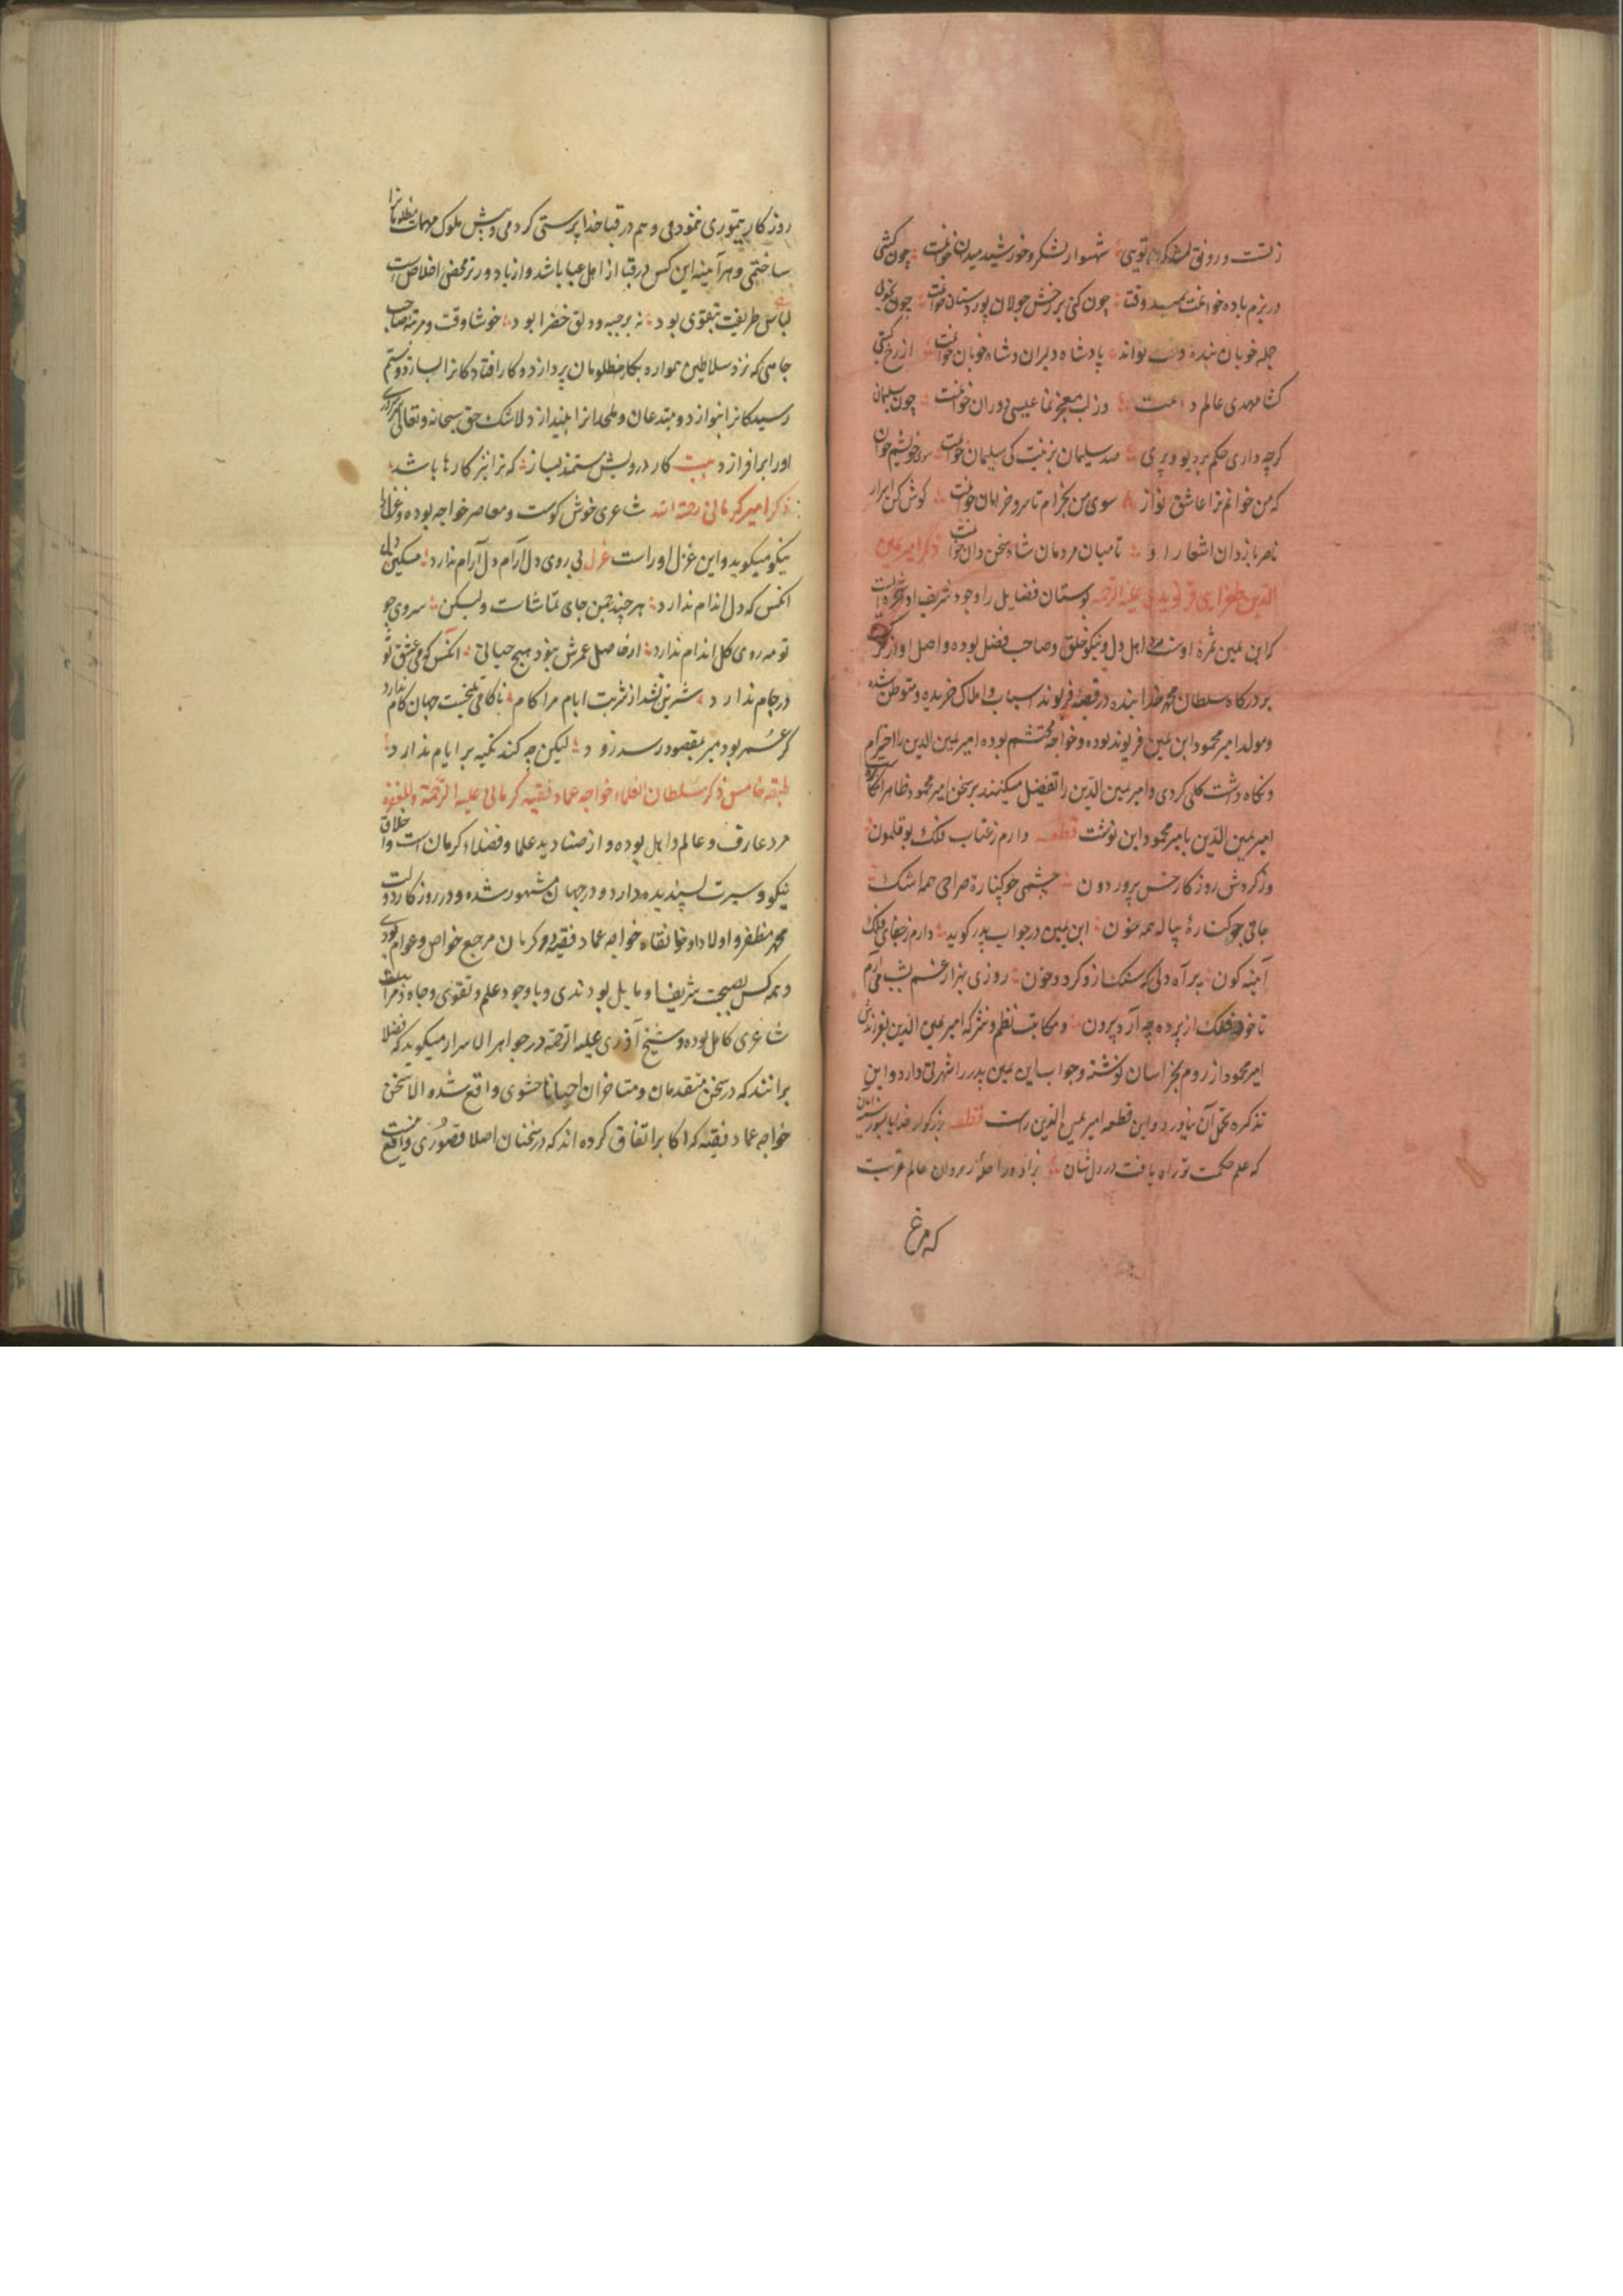 زتست و رونق لشکر تویی شهسوار لشکر و خورشید میدان خوانمت چون کشی
در بزم باده خوانمت وقتا چون کنی بر رخش جولان پور دستان خوانمت چون
جمله خوبان بنده و تو پادشاه دلبران و شاه خوبان خوانمت از رخ گیتی
کشا مهدی عالم و زلب معجز نما عیسی دوران خوانمت چون سلیمان
کرچه داری حکم بر دیو و پری صد سلیمان بر در کی سلیمان خوانمت سوی خویشم خوان
که من خوانم ترا عاشق نواز سوی من بخرام تا سرو خرامان خوانمت گوش کن ابرار
ناصر باز دان اشعار او تا میان مردمان شاه سخن دان خوانمت ذکر امیر یمین
الدین طغرایی فریومدی علیه الرحمه بوستان فضایل را وجود شریف او شجره ایست
که ابن یمین ثمره اوست اهل دل و نیکو خلق و صاحب فضل بوده و اصل او از ترک
بر درگاه سلطان محمد خدابنده در قصبه فریوند اسباب و املاک خریده و متوطن شده
و مولد امیر محمود ابن یمین فریوند بوده و خواجه محتشم بوده امیر یمین الدین را احترام
و نگاه داشت کلی کردی و امیر یمین الدین را تفضیل میکنند بر سخن امیر محمود ظاهرا
امیر یمین الدین بامیر محمود این نوشت قطعه دارم زعتاب فلک بوقلمون
وز گردش روزگار خس پرور دون چشمی چو کناره صراحی همه اشک
جانی چو کناره پیاله همه خون ابن یمین در جواب پدر گوید دارم زجفای فلک
آینه گون پر آه دلی که سنگ ازو گردد خون روزی بهزار غم بشب می آرم
تا خود فلک از پرده چه آرد بیرون و مکاتبت نظم و نثر که امیر یمین الدین بفرزندش
امیر محمود از روم بخراسان نوشته و جواب ابن یمین پدر را شهرتی دارد و این
تذکره تحمل آن نیاورد و این قطعه امیر یمین الدین راست قطعه بزرگوار خدایا بسوز سینه
که علم حکمت تو راه یافت در دل شان بزاد و راحله رهروان عالم قربت
که مرغ
روزگار بتهوری نمودمی و هم در قبا خدا پرستی کردمی و پیش ملوک مهمات مظلومانرا
ساختمی و هر آینه این کس در قبا از اهل عبا باشد و از باد و محض اخلاص است
لباس طریقت بتقوی بود نه بر جبه و دلق خضرا بود خوشا وقت و مرتبه صاحب
جاهی که نزد سلاطین همواره بکار مظلومان پردازد و کار افتادگانرا بسازد و ستم
رسیدگانرا بنوازد و مبتدعان و ملحدانرا بیندازد لاشک حق سبحانه و تعالی
اورا بر افرازد بیت کار درویش مستمند بساز که ترا نیز کارها باشد
ذکر امیر کرمانی رحمة الله شاعری خوش گوست و معاصر خواجه بوده و غزلها
نیکو میگوید و این غزل اوراست غزل بی روی دل آرام دل آرام ندارد مسکین دل
آنکس که دل اندام ندارد هر چند چمن جای تماشاست ولیکن سروی چو
تو مه روی گل اندام ندارد از حاصل عمرش نبود هیچ حیاتی آنکس که می عشق تو
در جام ندارد شیرین نشد از شربت ایام مرا کام ناکامی بختست جهان کام ندارد
گر عمر بود میر بمقصود رسد زود لیکن چه کند تکیه بر ایام ندارد
طبقه خامس ذکر سلطان العلماء خواجه عماد فقیه کرمانی علیه الرحمة والمغفرة
مرد عارف و عالم و اهل بوده و از صنادید علما و فضلاء کرمان است و اخلاق
نیکو و سیرت پسندیده دارد و در جهان مشهور شده و در روزگار دولت
محمد مظفر و اولاد او خانقاه خواجه عماد فقیه در کرمان مرجع خواص و عوام بودی
و همه کس بصحبت شریف او مایل بودندی و با وجود علم و تقوی و جاه و مراتب
شاعری کامل بوده و شیخ آذری علیه الرحمة در جواهر الاسرار میگوید که فضلا
برانند که در سخن متقدمان و متاخران احیانا حشوی واقع شده الا سخن
خواجه عماد فقیه که اکابر اتفاق کرده اند که در سخنان اصلا قصوری واقع نیست